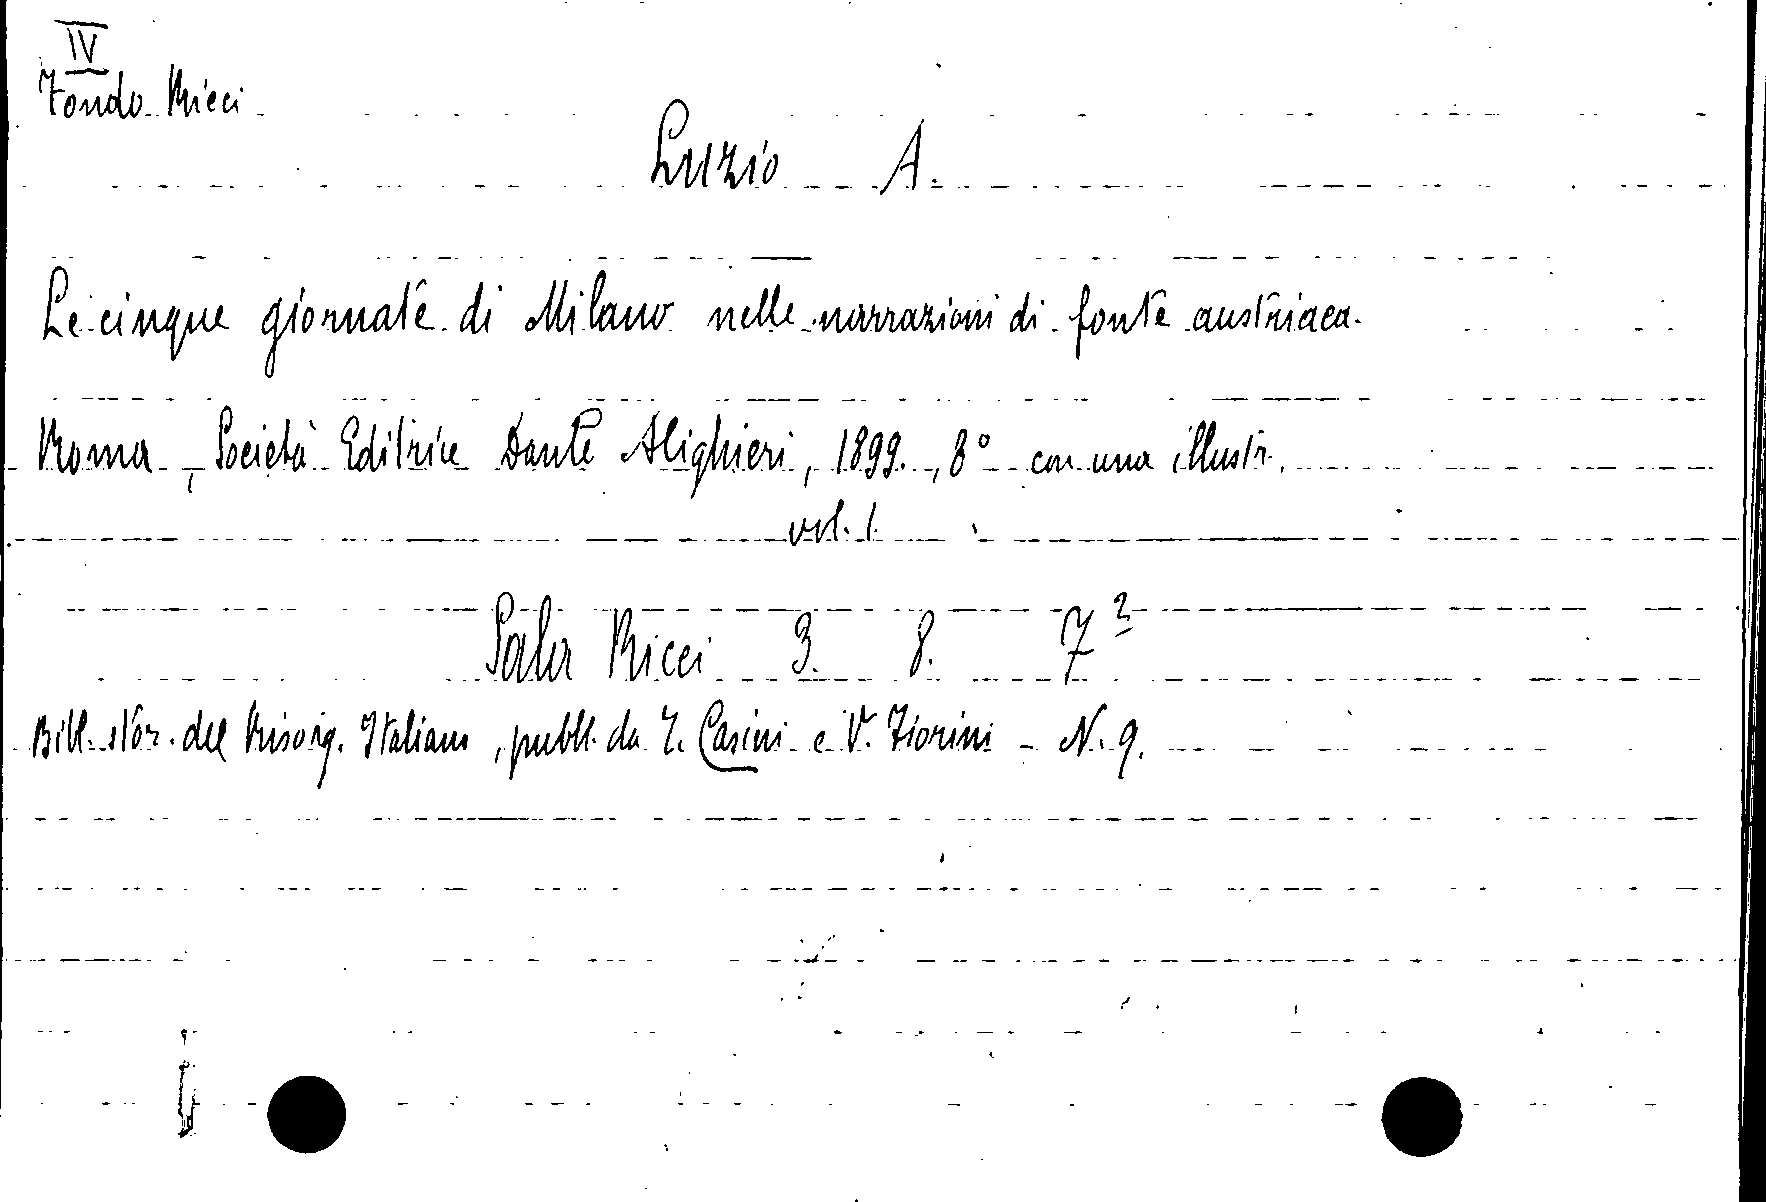 IV
Fondo Ricci
Luzio A.
Le cinque giornate di Milano nelle narrazioni di fonte austriaca.
Roma, Società Editrice Dante Alighieri, 1899., 8° con una illustr.
vol. 1.
Sala Ricci 3. 8. 7²
Bibl. stor. del Risorg. Italiano, pubbl. da T. Casini e V. Fiorini - N. 9.